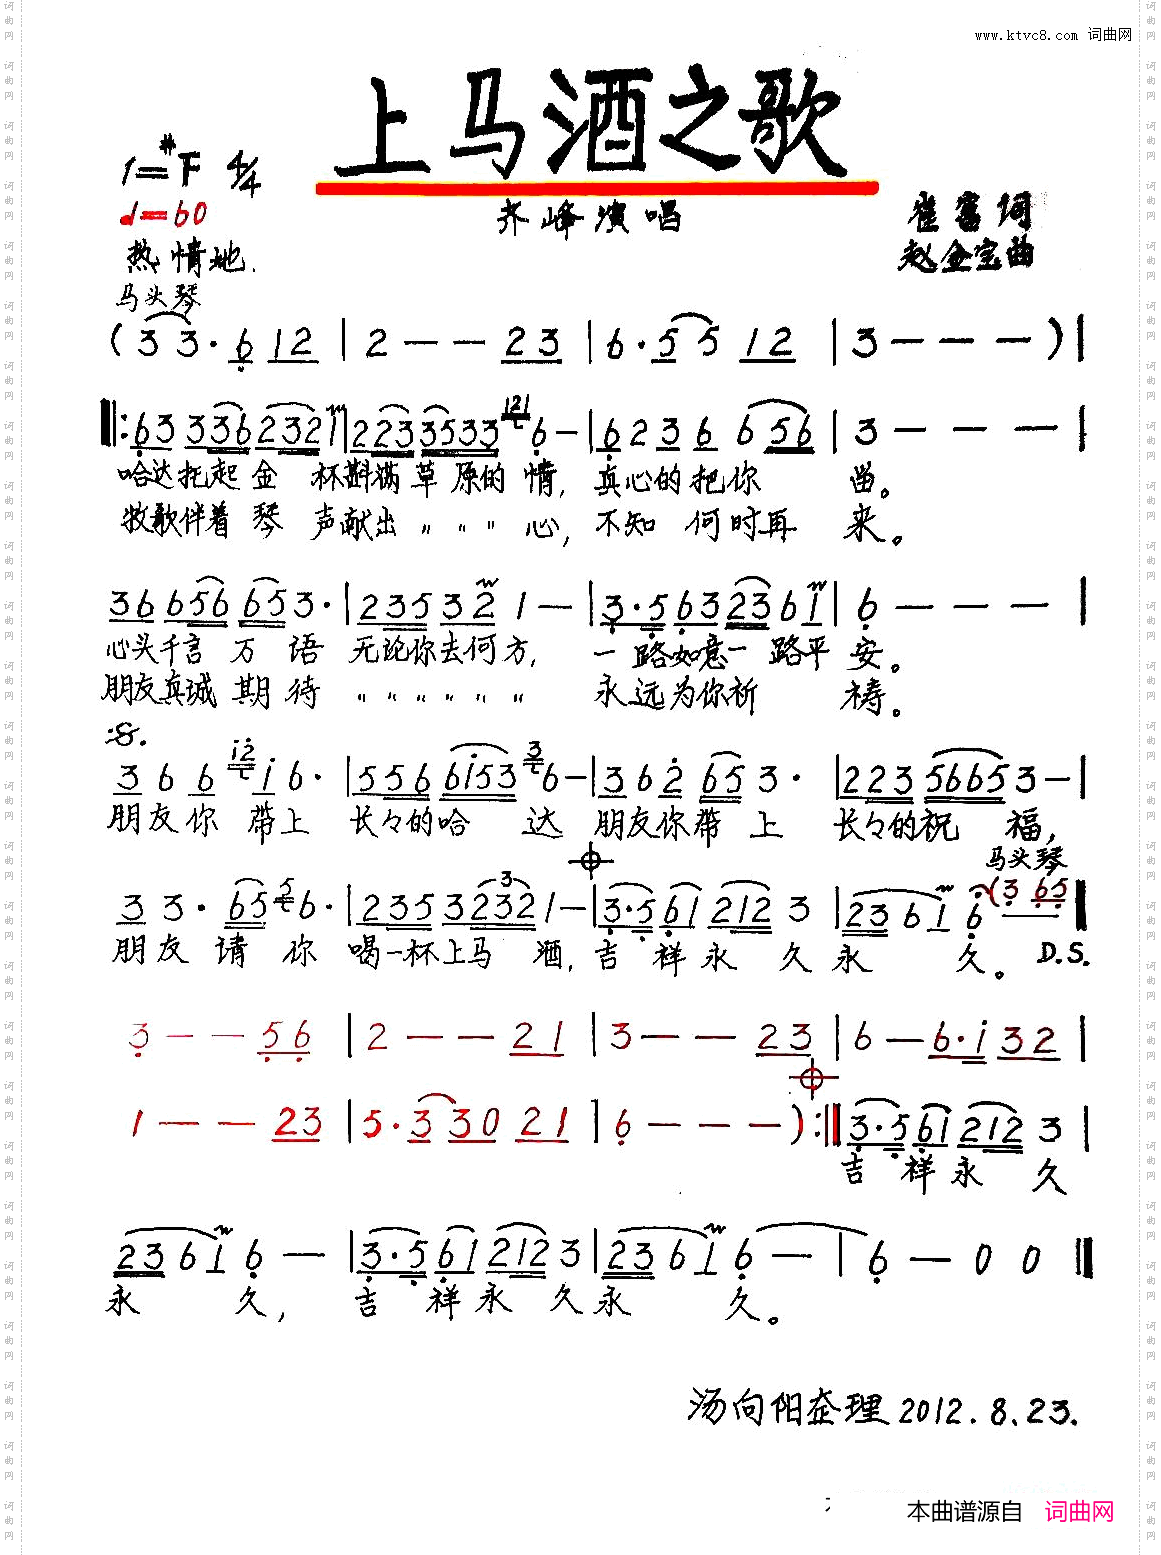 www.ktvc8.com 词曲网
上马酒之歌
1=#F 4/4
♩=60
齐峰演唱
崔富词
赵金宝曲
热情地.
马头琴
(3 3·6 12 | 2 - - 23 | 6·5 5 12 | 3 - - - )|
‖:63 336 2321 | 223 3533 121 6 - | 6236 656 | 3 - - - |
哈达托起金 杯斟满草原的情, 真心的把你 留。
牧歌伴着琴 声献出 〃 〃 〃 心, 不知何时再 来。
36 656 653· | 235 32 1 - | 3·5 63 23 61 | 6 - - - |
心头千言万语 无论你去何方, 一路如意一路平 安。
朋友真诚期待 〃 〃 〃 〃 〃 〃 永远为你祈 祷。
:S.
3 6 6 12 1 6· | 556 6153 3 6 - | 362 65 3· | 223 5665 3 - |
朋友你 带上 长々的哈 达 朋友你带上 长々的祝 福,
马头琴
3 3· 65 5 6· | 235 3 232 1 - | 3·5 61 212 3 | 23 61 6 (3 65 ‖
朋友 请你 喝一杯上马 酒, 吉祥永久永 久。 D.S.
3 - - 56 | 2 - - 21 | 3 - - 23 | 6 - 6·1 32 |
1 - - 23 | 5·3 30 21 | 6 - - - ):‖ 3·5 61 212 3 |
吉祥永久
23 61 6 - | 3·5 61 212 3 | 23 61 6 - | 6 - 0 0 ‖
永 久, 吉祥永久永 久。
汤向阳整理 2012.8.23.
本曲谱源自 词曲网